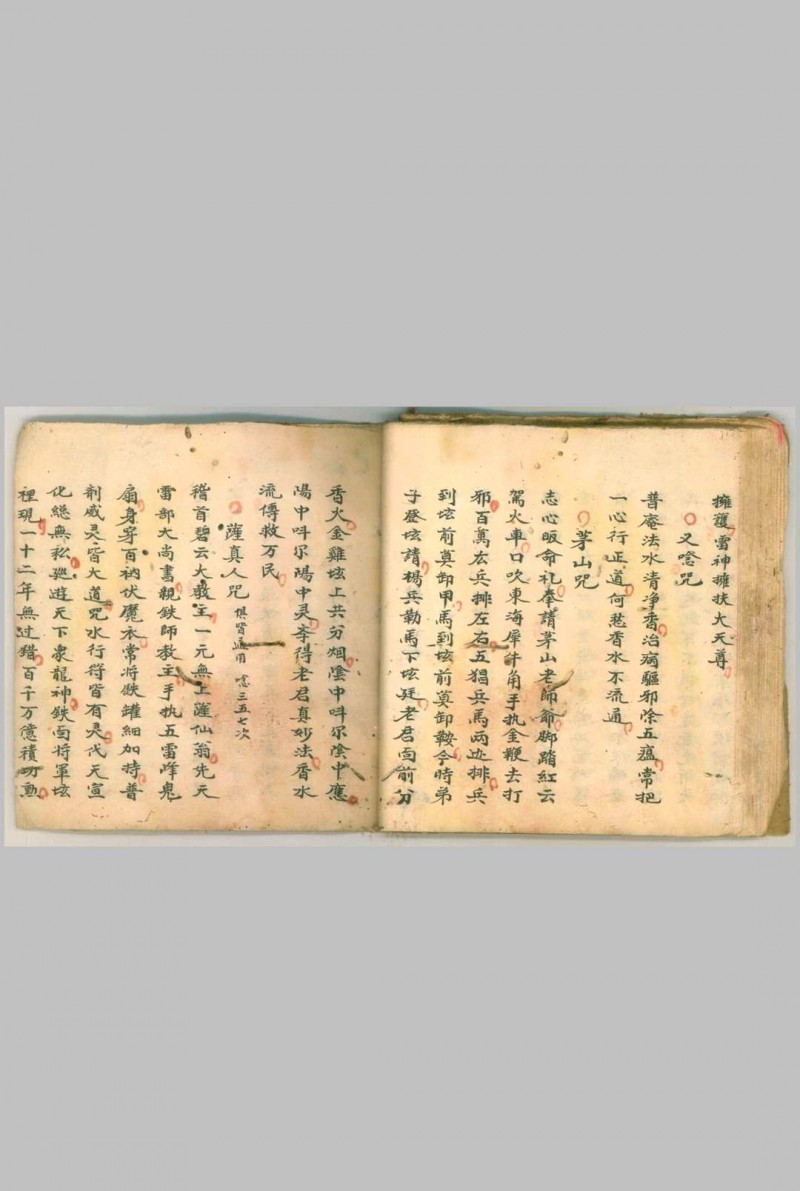 擁護雷神擁扶大天尊
又唸咒
普庵法水清净香治病驅邪除五瘟常把
一心行正道何愁香水不流通
茅山咒
志心皈命礼奉請茅山老師爺脚踏紅云
駕火車口吹東海犀牛角手执金鞭去打
邪百萬広兵排左右五猖兵馬两边排兵
到坛前莫卸甲馬到坛前莫卸鞍今時弟
子登坛請楊兵勒馬下坛廷老君面前分
香火金雞坛上共分烟陰中呌尔陰中應
陽中呌尔陽中灵奉得老君真妙法香水
流傳救万民
薩真人咒 俱皆通用 唸三五七次
稽首碧云大教主一元無上薩仙翁先天
雷部大尚書親鉄師教主手执五雷峰鬼
扇身穿百衲伏魔衣常将鉄罐細加持普
剤威灵皆大道咒水行符皆有灵代天宣
化縂無私廵遊天下隶龍神鉄面将軍坛
裡現一十二年無过錯百千万億積功勳